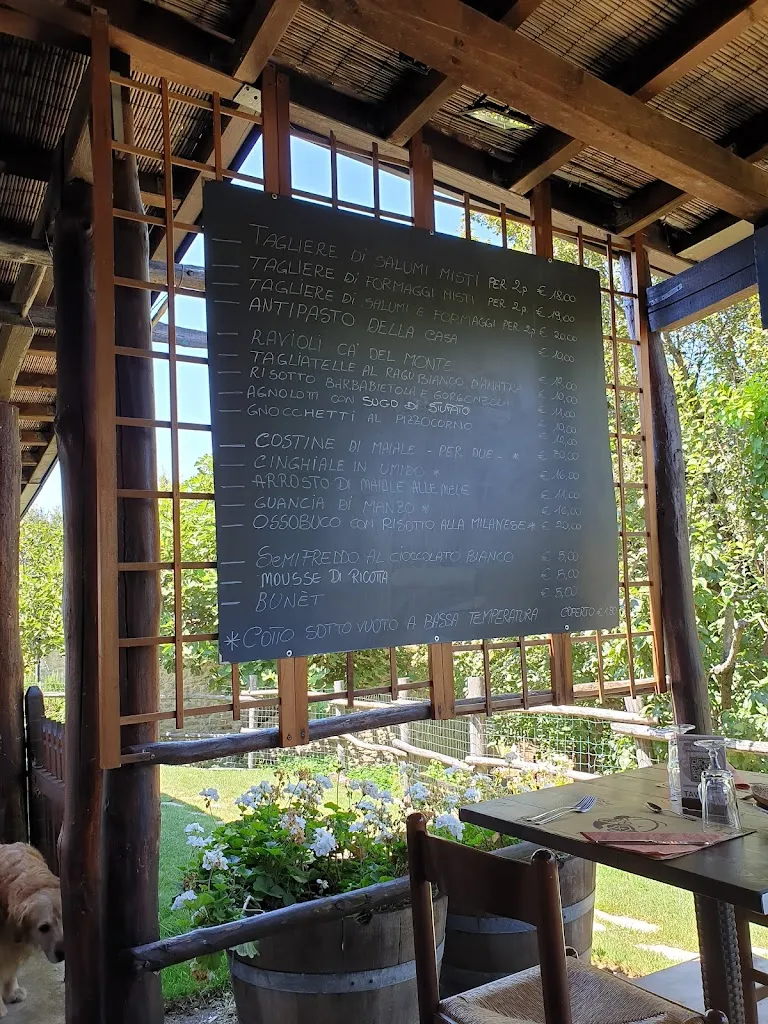 — TAGLIERE DI SALUMI MISTI PER 2.P € 18,00
— TAGLIERE DI FORMAGGI MISTI PER 2.P. € 19,00
— TAGLIERE DI SALUMI E FORMAGGI PER 2.P € 20,00
— ANTIPASTO DELLA CASA
— RAVIOLI CA' DEL MONTE
— TAGLIATELLE AL RAGU BIANCO D'ANATRA
— RISOTTO BARBABIETOLE E GORGONZOLA
— AGNOLOTTI CON SUGO DI STUFATO
— GNOCCHETTI AL PIZZOCORNO
— COSTINE DI MAIALE - PER DUE - * € 30,00
— CINGHIALE IN UMIDO * € 16,00
— ARROSTO DI MAIALE ALLE MELE
— GUANCIA DI MANZO * € 16,00
— OSSOBUCO CON RISOTTO ALLA MILANESE * € 20,00
— SEMIFREDDO AL CIOCCOLATO BIANCO € 5,00
— MOUSSE DI RICOTTA € 5,00
— BUNÈT € 5,00
* COTTO SOTTO VUOTO A BASSA TEMPERATURA COPERTO